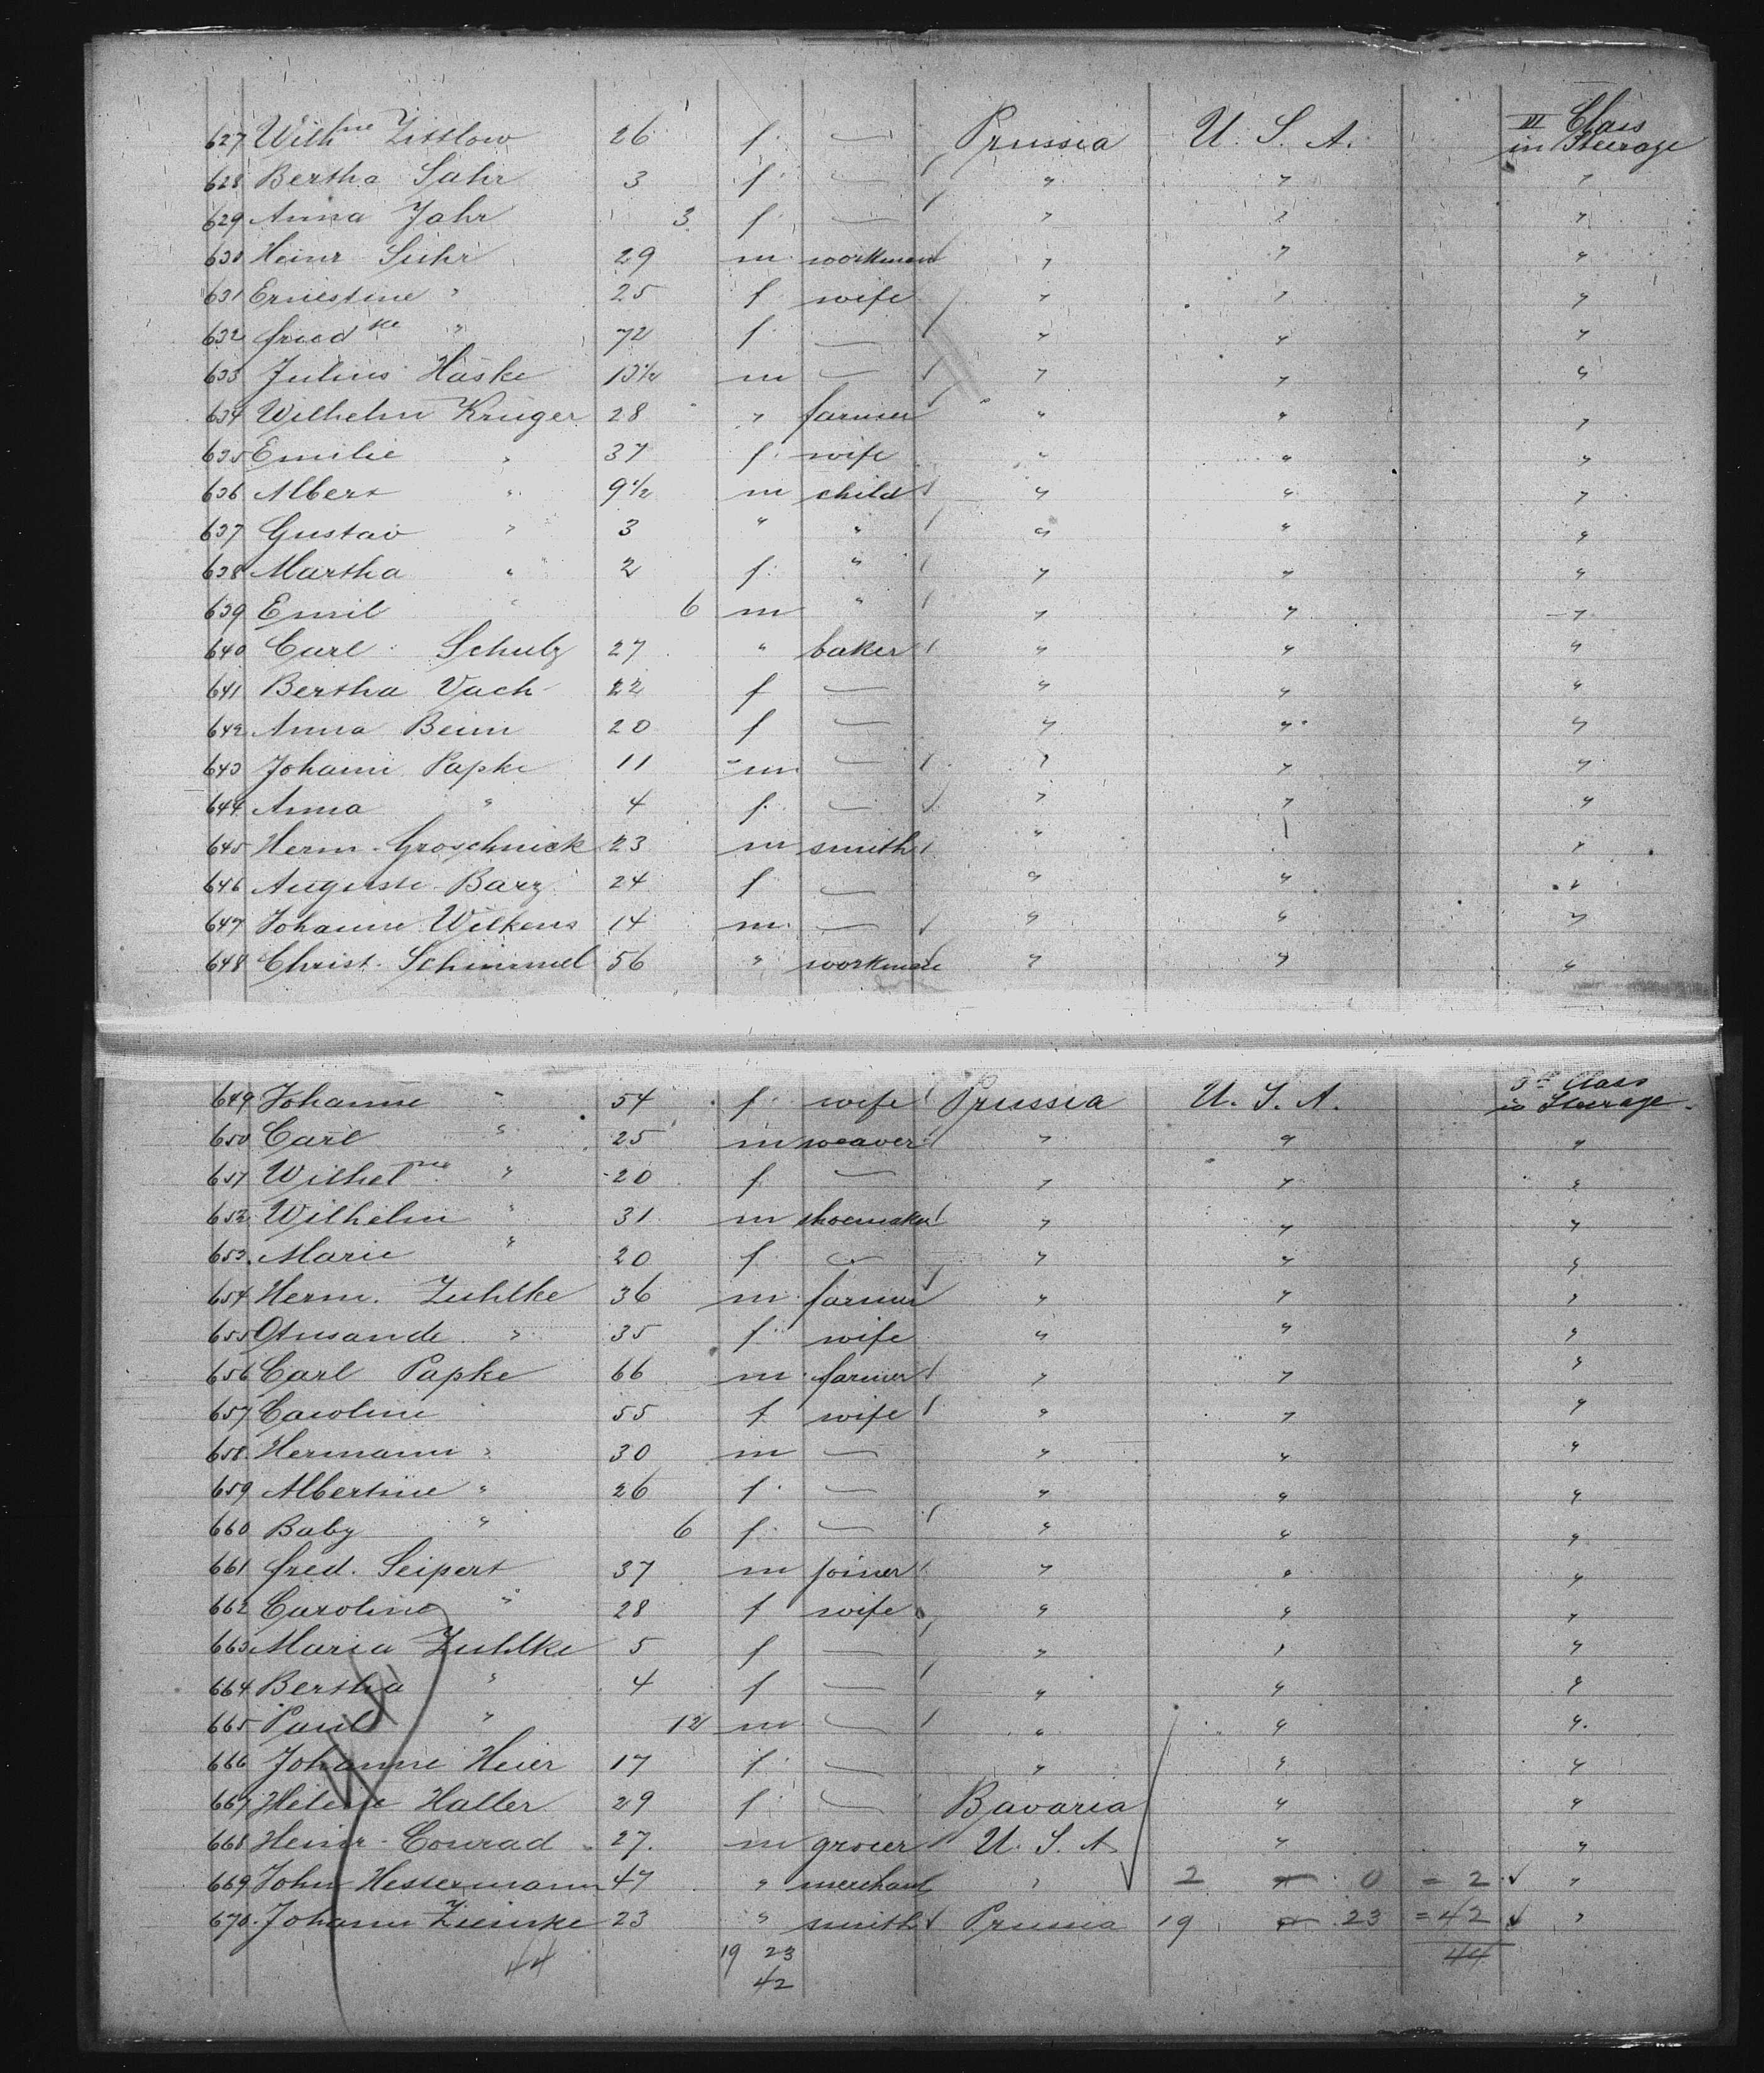 627 Wilhne Zittlow 26 f. — Prussia U. S. A. III Class in Steerage
628 Bertha Sahr 3 f. — " " "
629 Anna Jahr 3 f. — " " "
630 Heinr Suhr 29 m. workman " " "
631 Ernestine " 25 f. wife " " "
632 Friedke " 72 f. — " " "
633 Julius Häske 13½ m — " " "
634 Wilhelm Krüger 28 " farmer " " "
635 Emilie " 37 f. wife " " "
636 Albert " 9½ m child " " "
637 Gustav " 3 " " " " "
638 Martha " 2 f. " " " "
639 Emil " 6 m " " " "
640 Carl Schulz 27 " baker " " "
641 Bertha Vach 22 f — " " "
642 Anna Beim 20 f — " " "
643 Johann Papke 11 m — " " "
644 Anna " 4 f. — " " "
645 Herm. Groschnick 23 m smith " " "
646 Auguste Barz 24 f — " " "
647 Johann Wilkens 14 m. — " " "
648 Christ. Schimmel 56 " workman " " "
649 Johanne " 54 f. wife Prussia U. S. A. 3d Class in Steerage
650 Carl " 25 m weaver " " "
651 Wilhelmne " 20 f — " " "
652 Wilhelm " 31 m shoemaker " " "
653 Marie " 20 f — " " "
654 Herm. Zuhlke 36 m. farmer " " "
655 " 35 f. wife " " "
656 Carl Papke 66 m. farmer " " "
657 Caroline " 55 f wife " " "
658 Hermann " 30 m — " " "
659 Albertine " 26 f. — " " "
660 Baby " 6 f. — " " "
661 Fred. Seipert 37 m joiner " " "
662 Caroline " 28 f wife " " "
663 Maria Zuhlke 5 f — " " "
664 Bertha " 4 f — " " "
665 Paul " 12 m — " " "
666 Johanne Heier 17 f. — " " "
667 Helene Haller 29 f. — Bavaria " "
668 Heinr. Conrad 27. m grocer U. S. A. " "
669 John Hestermann 47 " merchant " 2 " 0 = 2 "
670. Johann Ziemke 23 " smith Prussia 19 " 23 = 42 "
44 19 23 44
42